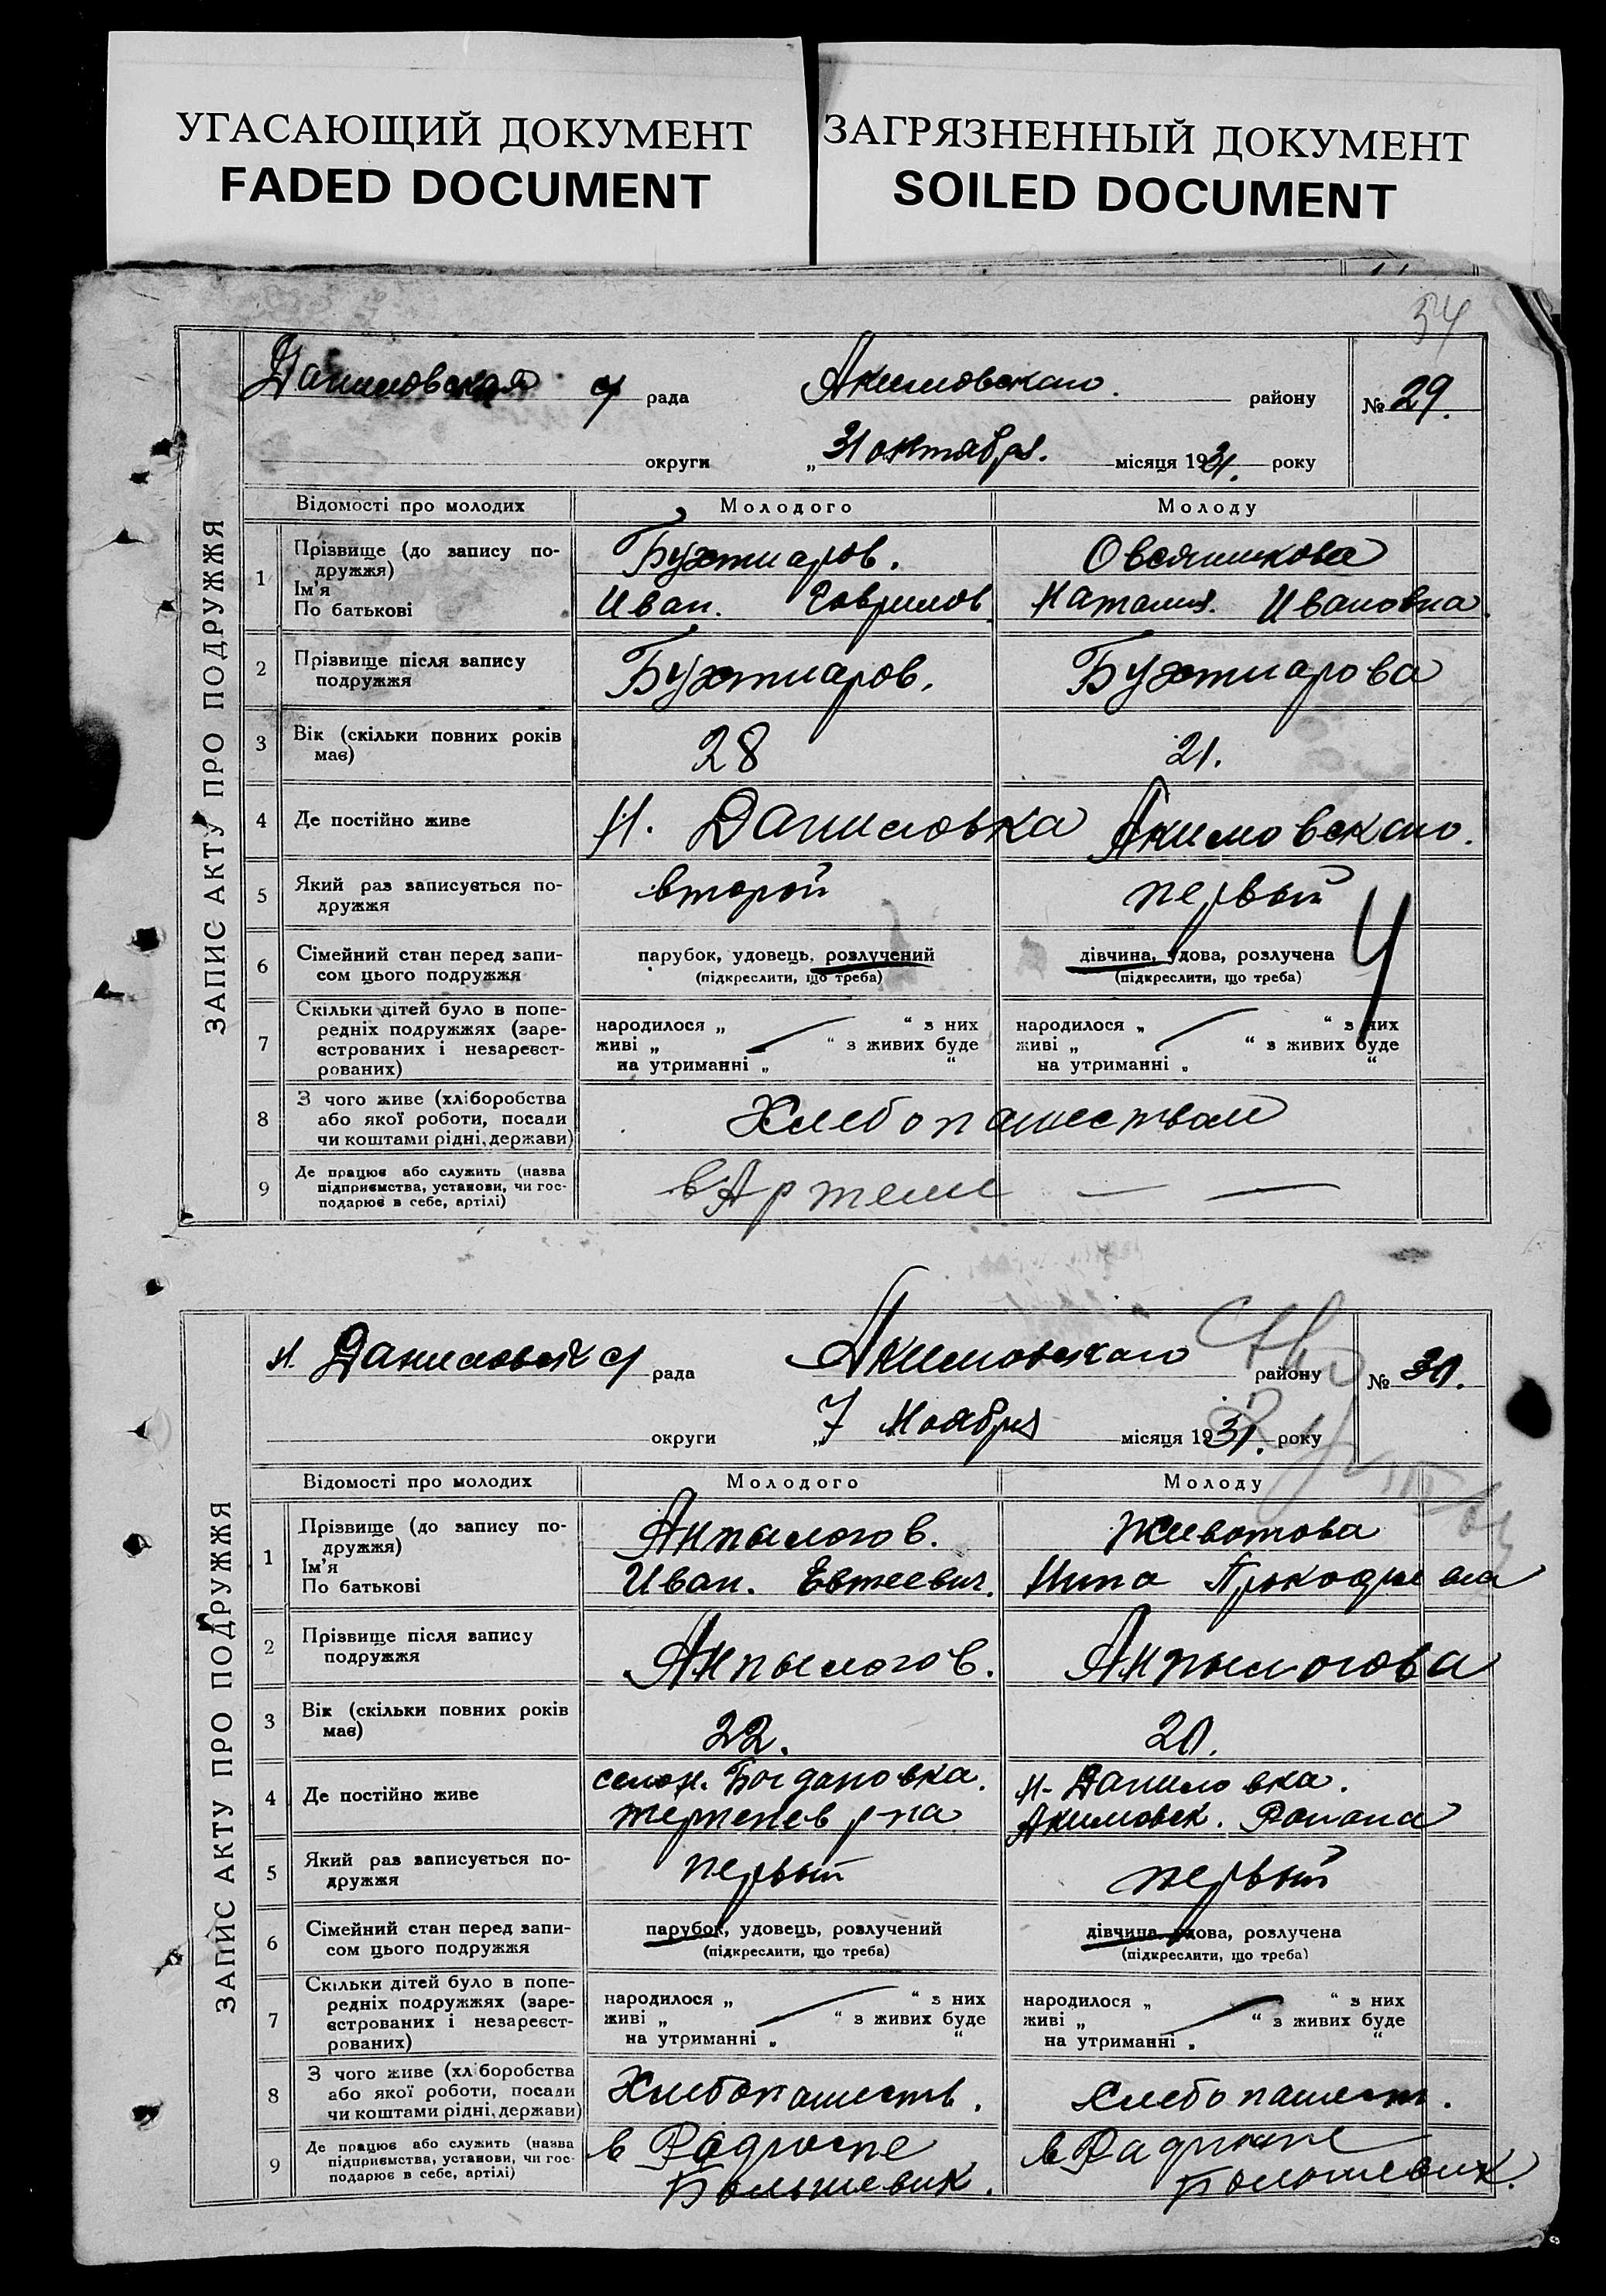 УГАСАЮЩИЙ ДОКУМЕНТ
FADED DOCUMENT
ЗАГРЯЗНЕННЫЙ ДОКУМЕНТ
SOILED DOCUMENT
34
ЗАПИС АКТУ ПРО ПОДРУЖЖЯ
Даниловская с/ рада Акимовского району № 29.
округи „ 31 октября. місяця 1931. року
Відомості про молодих Молодого Молоду
1 Прізвище (до запису подружжя) Бухтиаров. Овсянникова
Ім'я
По батькові Иван. Гаврилов Наталия. Ивановна
2 Прізвище після запису
подружжя Бухтиаров. Бухтиарова
3 Вік (скільки повних років
має) 28 21.
4 Де постійно живе Н. Даниловка Акимовского.
5 Який раз записується по-
дружжя второй первый
6 Сімейний стан перед запи- парубок, удовець, розлучений дівчина, удова, розлучена
сом цього подружжя (підкреслити, що треба) (підкреслити, що треба)
7 Скільки дітей було в попе-
редніх подружжях (заре- народилося „ “ з них народилося „ “ з них
єстрованих і незареєст- живі „ “ з живих буде живі „ “ з живих буде
рованих) на утриманні „ “ на утриманні „ “
8 З чого живе (хліборобства
або якої роботи, посади Хлебопашеством
чи коштами рідні, держави)
9 Де працює або служить (назва
підприємства, установи, чи гос- в Артели — —
подарює в себе, артілі)
ЗАПИС АКТУ ПРО ПОДРУЖЖЯ
н. Даниловск с/ рада Акимовского району № 30.
округи „ 7 Ноября місяця 1931. року
Відомості про молодих Молодого Молоду
1 Прізвище (до запису по-
дружжя) Анпылогов. Животова
Ім'я
По батькові Иван. Евтеевич. Нина
2 Прізвище після запису
подружжя Анпылогов. Анпылогова
3 Вік (скільки повних років
має) 22. 20.
4 Де постійно живе село н. Богдановка. н. Даниловка.
терпенев р-на Акимовск. Района
5 Який раз записується по-
дружжя первый первый
6 Сімейний стан перед запи- парубок, удовець, розлучений дівчина, удова, розлучена
сом цього подружжя (підкреслити, що треба) (підкреслити, що треба)
7 Скільки дітей було в попе-
редніх подружжях (заре- народилося „ “ з них народилося „ “ з них
єстрованих і незареєст- живі „ “ з живих буде живі „ “ з живих буде
рованих) на утриманні „ “ на утриманні „ “
8 З чого живе (хліборобства
або якої роботи, посади Хлебопашеств. Хлебопашест.
чи коштами рідні, держави)
9 Де працює або служить (назва
підприємства, установи, чи гос- в в
подарює в себе, артілі) Большевик. Большевик.